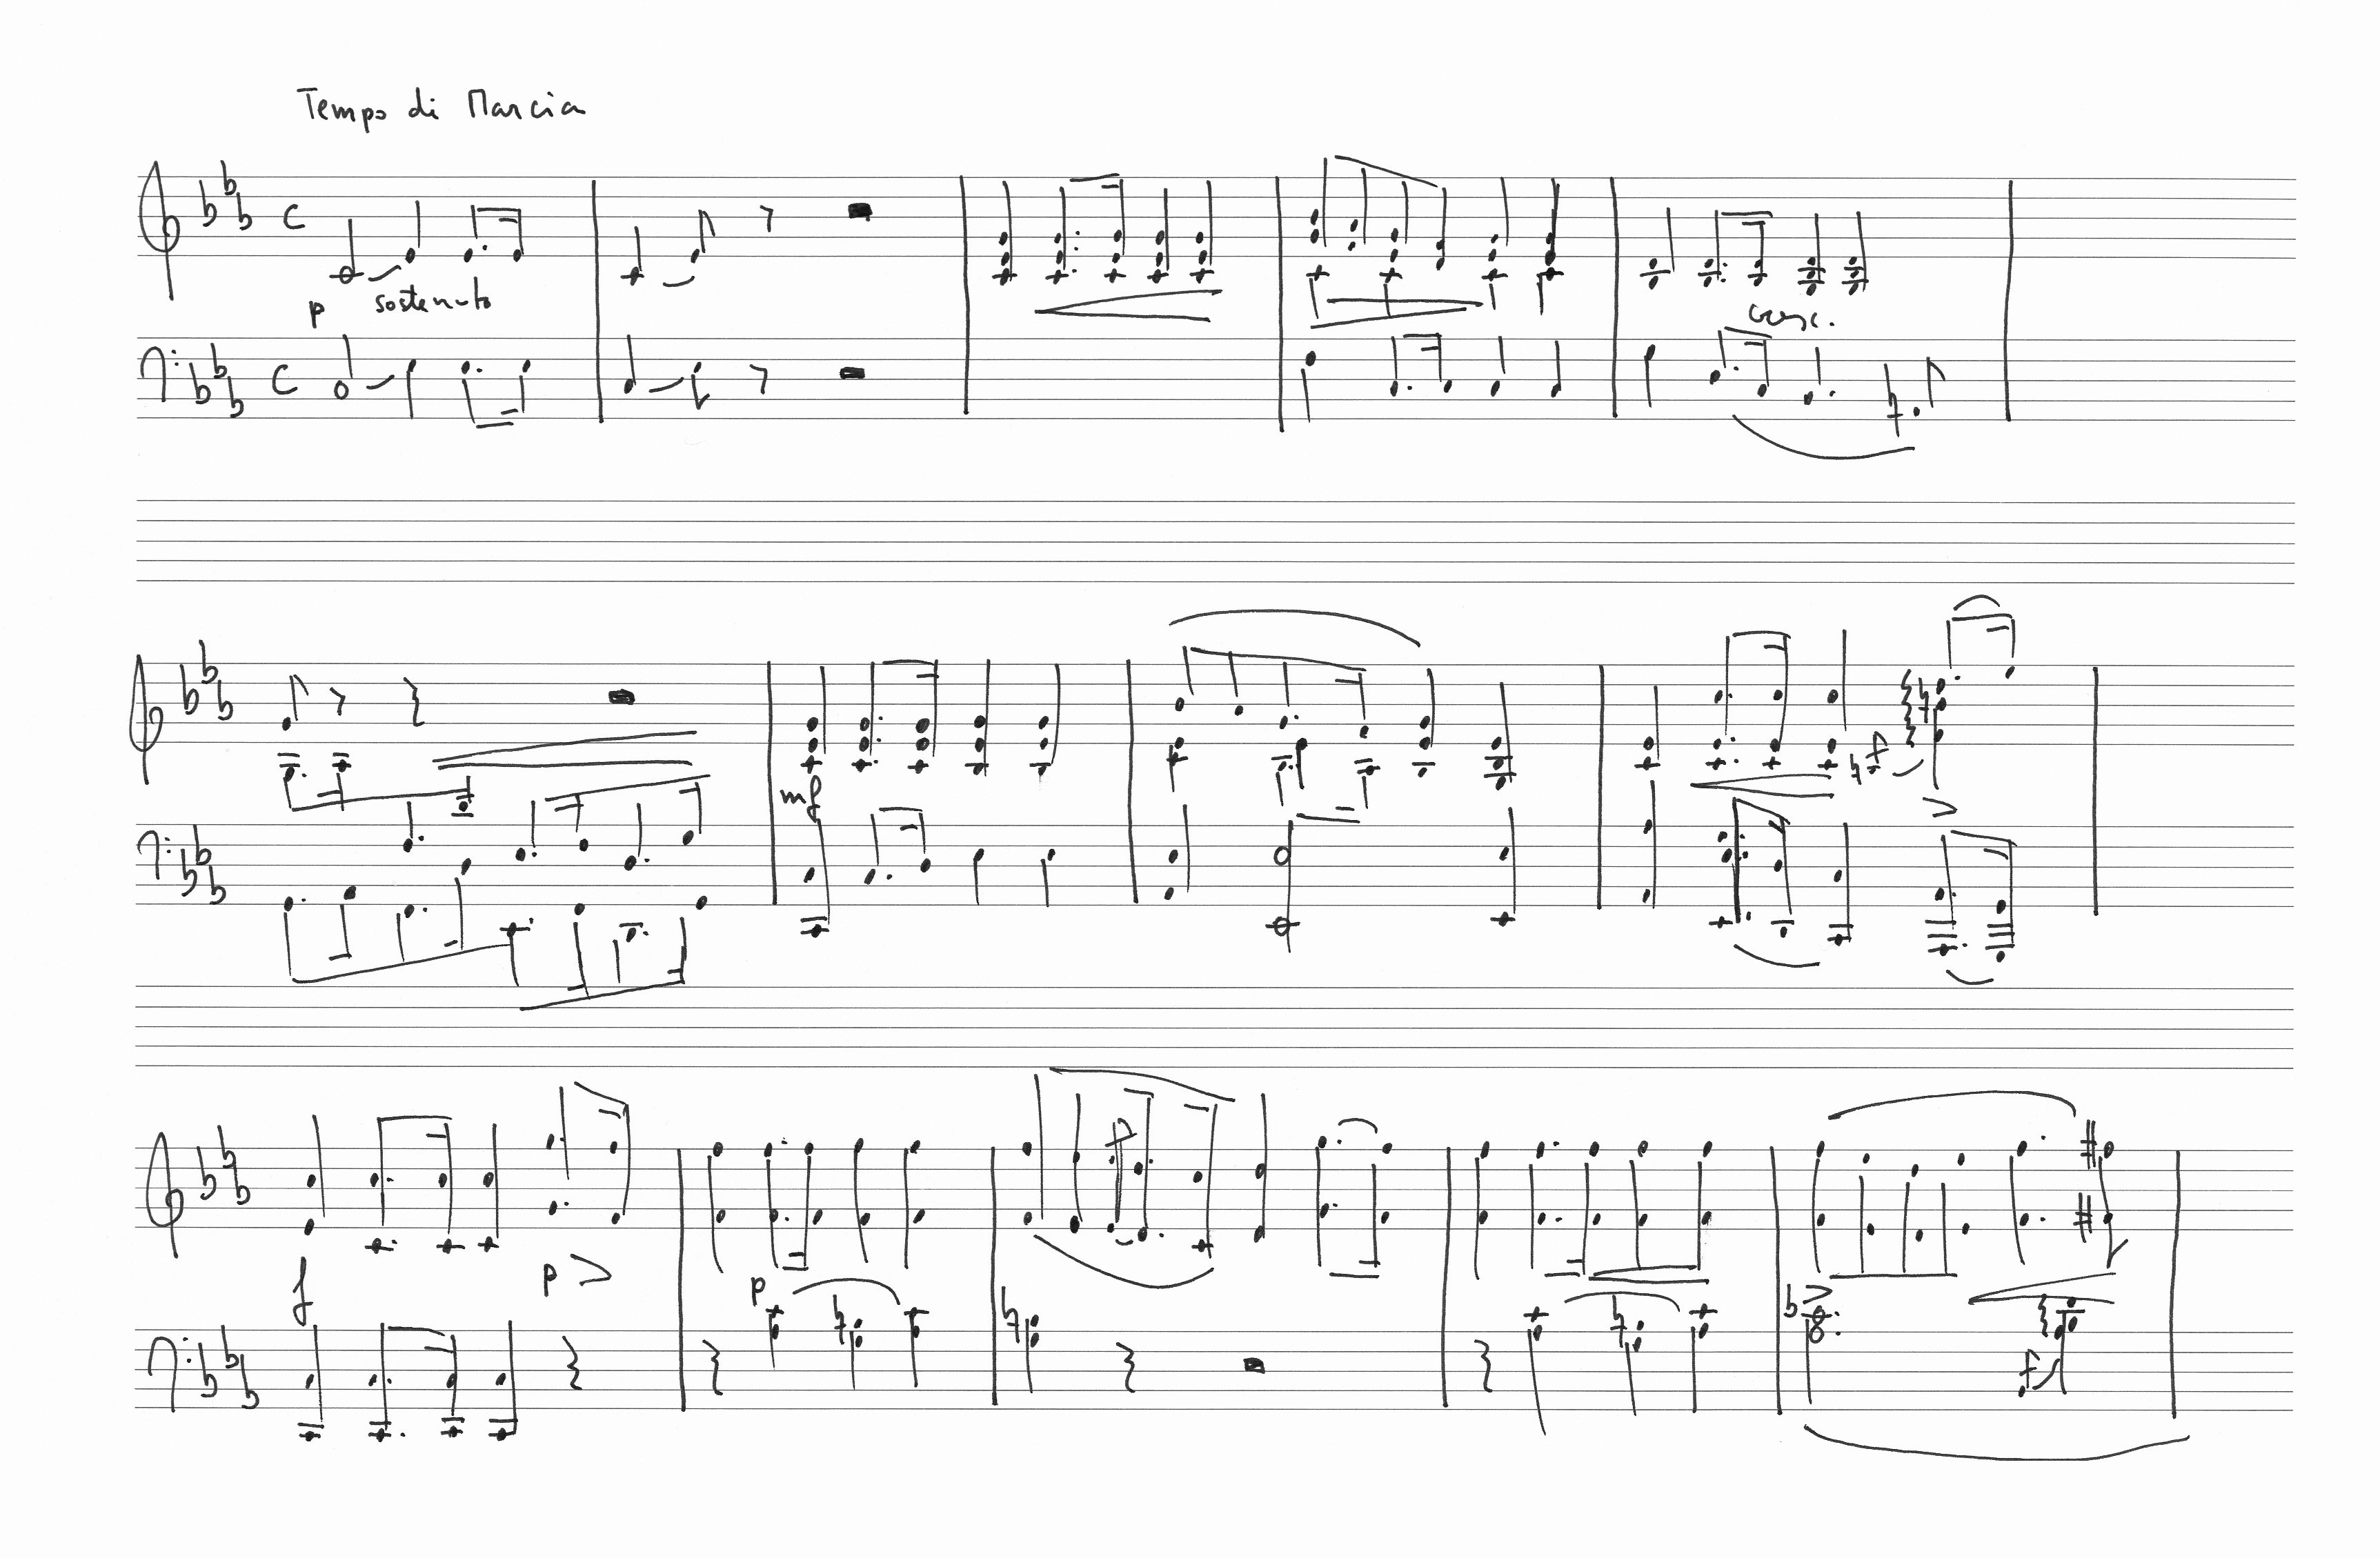 Tempo di Marcia
C
p sostenuto
cresc.
C
mf
f
f
p
p
f